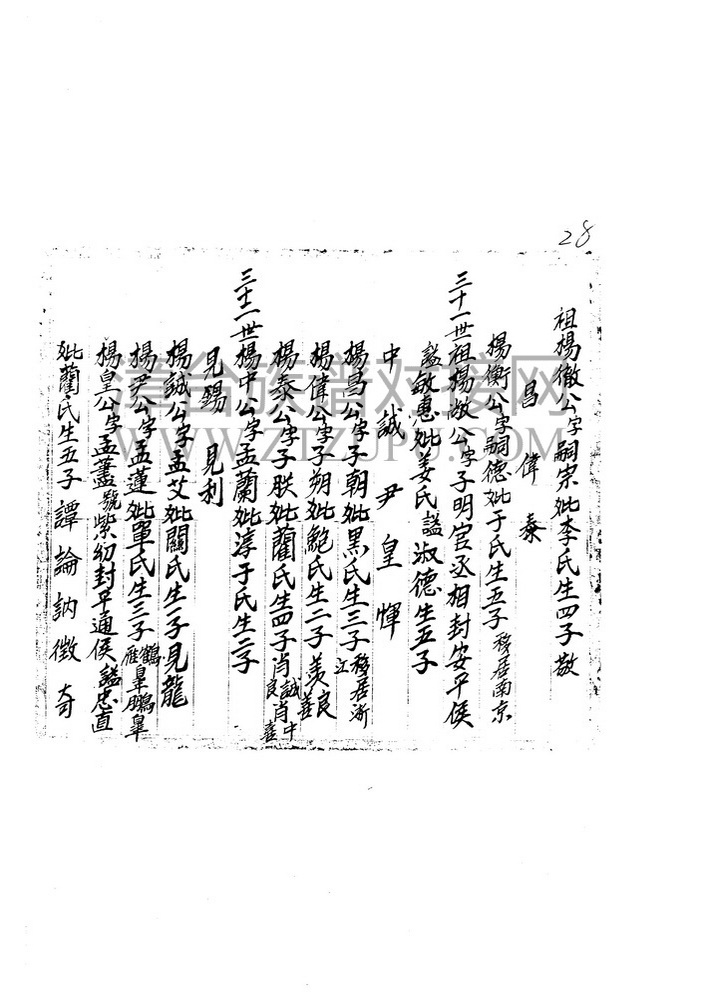 28
祖楊徹公字嗣宗妣李氏生四子敬
昌 偉 泰
楊衡公字嗣德妣于氏生五子移居南京
三十一世祖楊敬公字子明官丞相封安平侯
諡敏惠妣姜氏諡淑德生五子
中 誠 尹 皇 惲
楊昌公字子朝妣黑氏生三子移居浙江
楊偉公字子朔妣鮑氏生二子羨良 善
楊泰公字子朕妣藺氏生四子肖誠肖中 良 喜
三十二世楊中公字孟蘭妣淳于氏生二子
見錫 見利
楊誠公字孟艾妣關氏生一子見龍
楊尹公字孟蓮妣單氏生三子鶴皐鵬皐 雁
楊皇公字孟藎號紫幼封平通侯諡忠直
妣藺氏生五子 譚 論 訥 徵 奇
尋合族譜對接網
WWW.ZIZUPU.COM